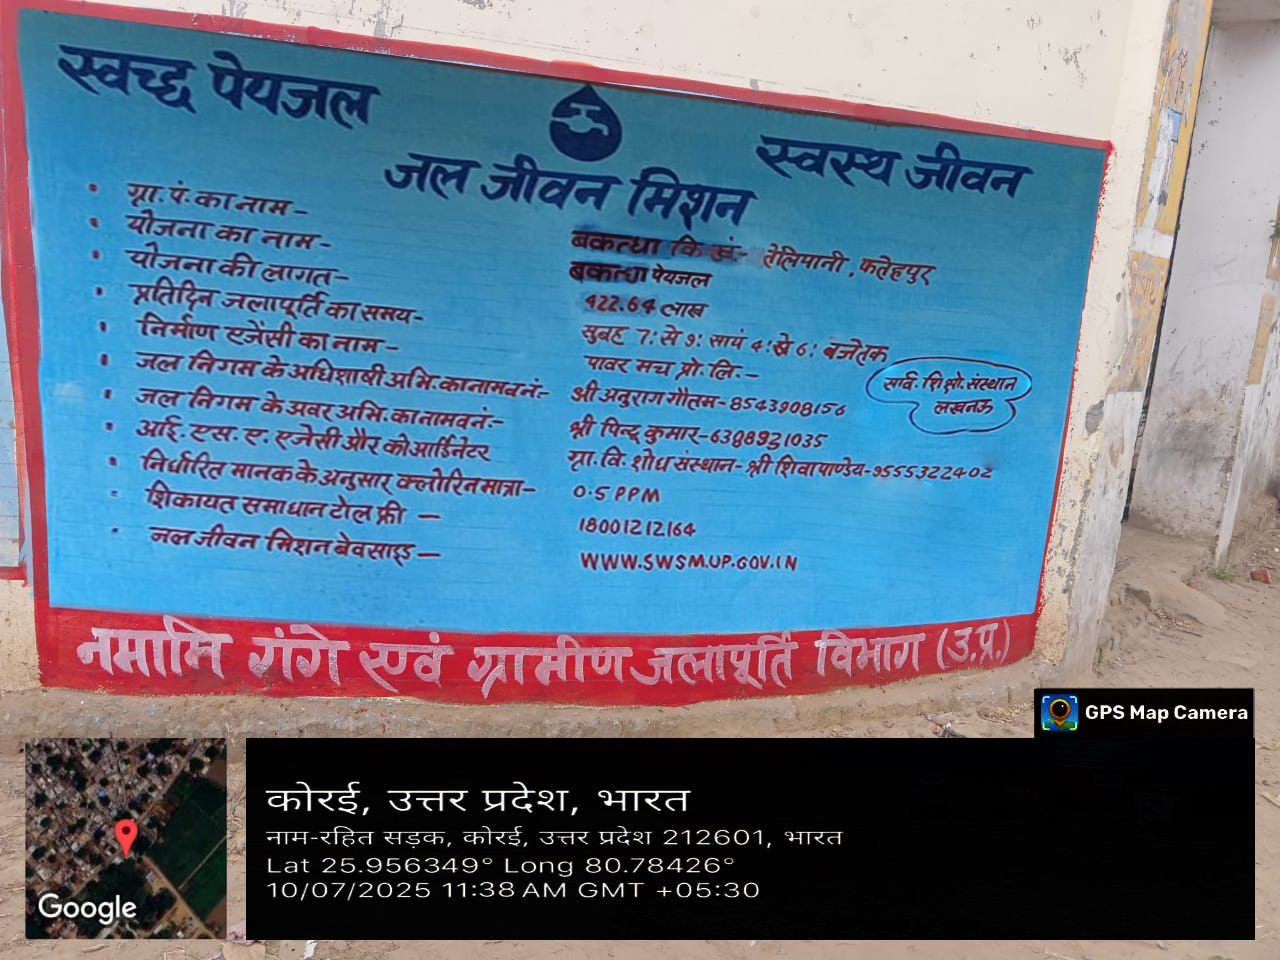 स्वच्छ पेयजल
स्वस्थ जीवन
जल जीवन मिशन
ग्रा. पं. का नाम - बकत्धा वि. खं.- तेलियानी, फतेहपुर
योजना का नाम - बकत्धा पेयजल
योजना की लागत - 422.64 लाख
प्रतिदिन जलापूर्ति का समय - सुबह 7: से 9: सायं 4: से 6: बजे तक
निर्माण एजेंसी का नाम - पावर मच प्रो. लि. -
जल निगम के अधिशाषी अभि. का नाम व नं:- श्री अनुराग गौतम - 8543908156
जल निगम के अवर अभि. का नाम व नं:- श्री पिन्टू कुमार - 6398921035
आई. एस. ए. एजेंसी और कोआर्डिनेटर ग्रा. वि. शोध संस्थान - श्री शिवा पाण्डेय - 9555322402
सार्व. शि क्षो. संस्थान
लखनऊ
निर्धारित मानक के अनुसार क्लोरिन मात्रा - 0.5 PPM
शिकायत समाधान टोल फ्री - 18001212164
जल जीवन मिशन बेवसाइड - WWW.SWSM.UP.GOV.IN
नमामि गंगे एवं ग्रामीण जलापूर्ति विभाग (उ.प्र.)
GPS Map Camera
कोरई, उत्तर प्रदेश, भारत
नाम-रहित सड़क, कोरई, उत्तर प्रदेश 212601, भारत
Lat 25.956349° Long 80.78426°
10/07/2025 11:38 AM GMT +05:30
Google